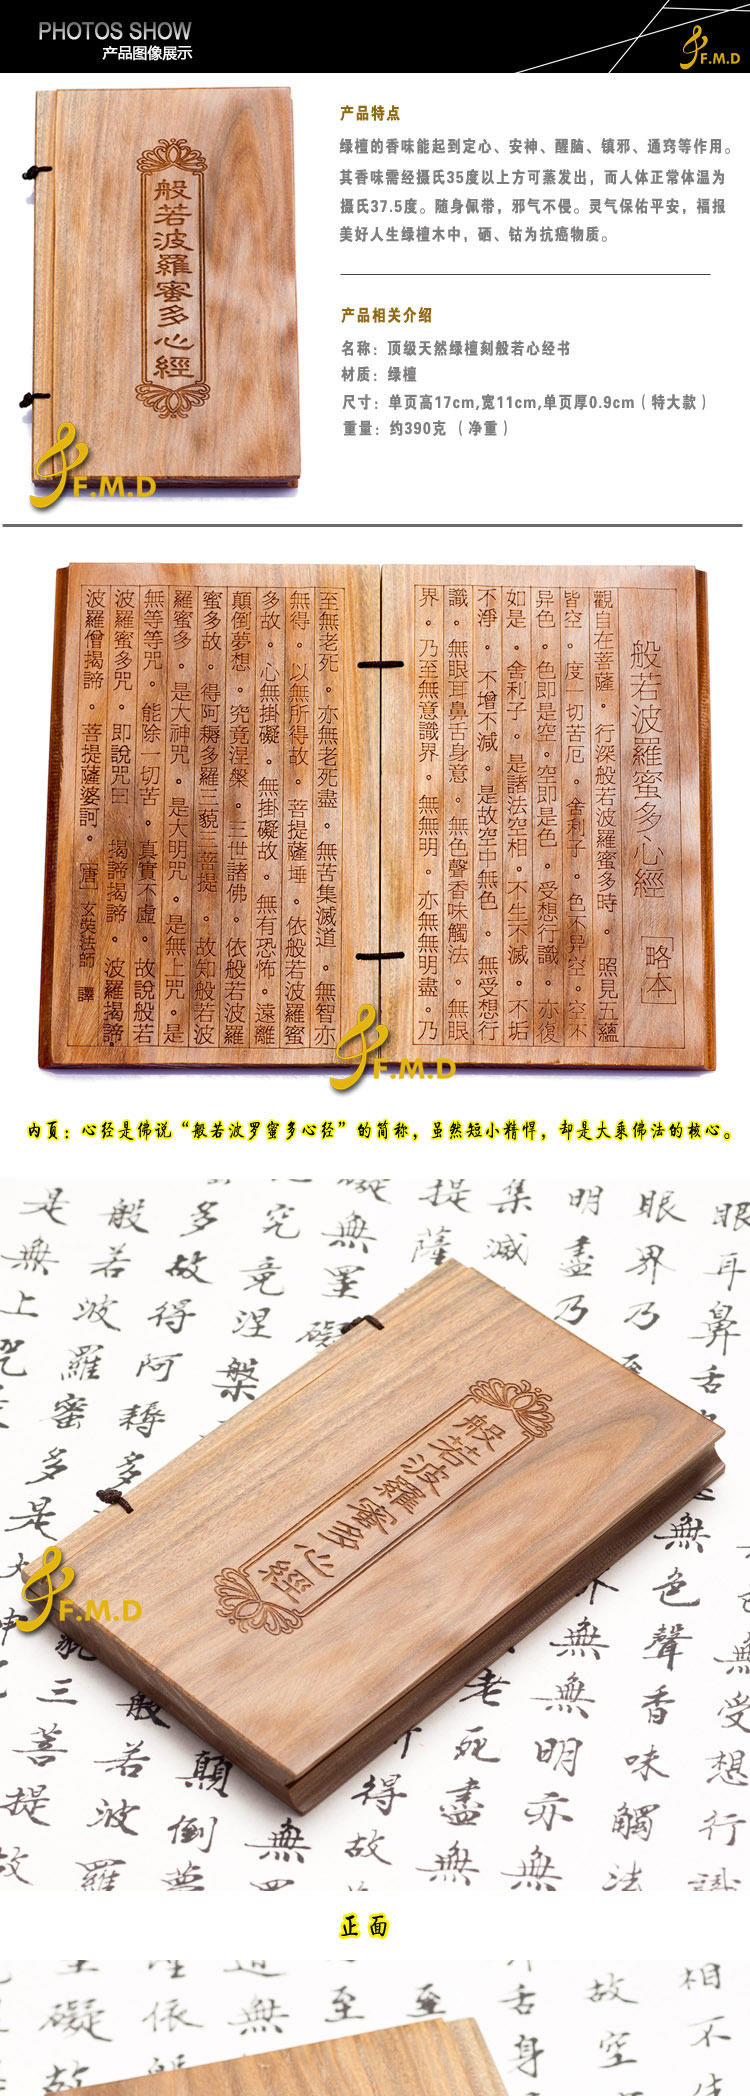 PHOTOS SHOW
产品图像展示
F.M.D
产品特点
绿檀的香味能起到定心、安神、醒脑、镇邪、通窍等作用。
其香味需经摄氏35度以上方可蒸发出，而人体正常体温为
摄氏37.5度。随身佩带，邪气不侵。灵气保佑平安，福报
美好人生绿檀木中，硒、钴为抗癌物质。
产品相关介绍
名称：顶级天然绿檀刻般若心经书
材质：绿檀
尺寸：单页高17cm,宽11cm,单页厚0.9cm（特大款）
重量：约390克 （净重）
般若波羅蜜多心經
F.M.D
般若波羅蜜多心經 [略本]
觀自在菩薩。行深般若波羅蜜多時。照見五蘊
皆空。度一切苦厄。舍利子。色不异空。空不
异色。色即是空。空即是色。受想行識。亦復
如是。舍利子。是諸法空相。不生不滅。不垢
不淨。不增不減。是故空中無色。無受想行
識。無眼耳鼻舌身意。無色聲香味觸法。無眼
界。乃至無意識界。無無明。亦無無明盡。乃
至無老死。亦無老死盡。無苦集滅道。無智亦
無得。以無所得故。菩提薩埵。依般若波羅蜜
多故。心無掛礙。無掛礙故。無有恐怖。遠離
顛倒夢想。究竟涅槃。三世諸佛。依般若波羅
蜜多故。得阿耨多羅三藐三菩提。故知般若波
羅蜜多。是大神咒。是大明咒。是無上咒。是
無等等咒。能除一切苦。真實不虛。故說般若
波羅蜜多咒。即說咒曰 揭諦揭諦。波羅揭諦。
波羅僧揭諦。菩提薩婆訶。[唐]玄奘法師 譯
F.M.D
内頁：心经是佛说“般若波罗蜜多心经”的简称，虽然短小精悍，却是大乘佛法的核心。
般若波羅蜜多心經
F.M.D
眼耳鼻舌
眼界乃
明盡乃
集滅
提薩
無罣礙
究竟涅槃
多故得阿耨多
般若波羅蜜多
是無上咒
無色聲香味觸法
受想行識
無無明亦無
老死盡無
得故
顛倒夢
般若波羅
三菩提故
正面
相不
故空
舌身
至
無
依般
礙故